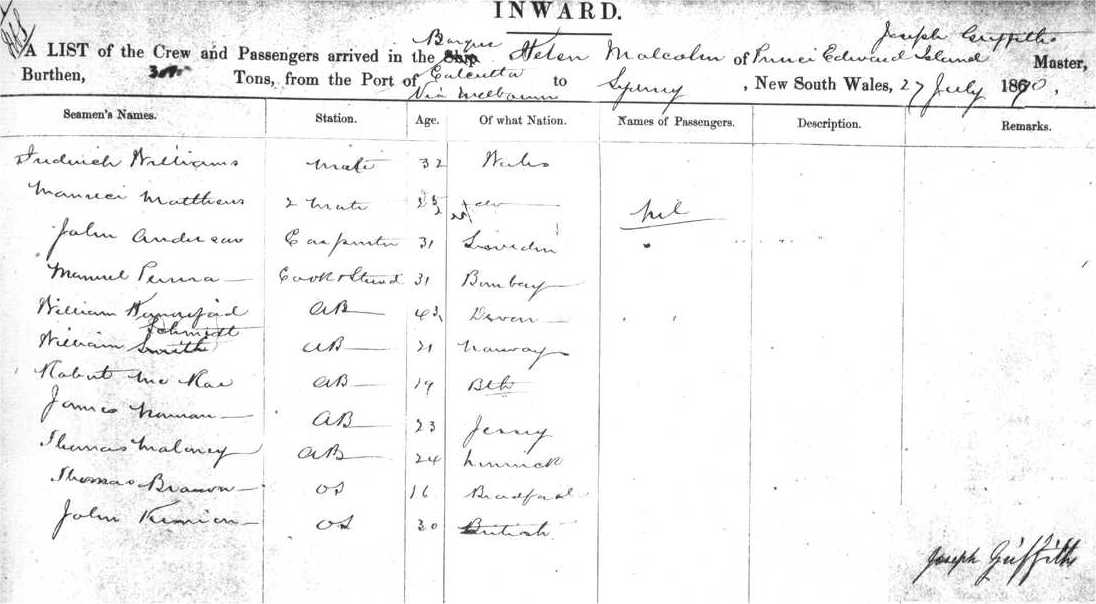 INWARD.
Joseph Griffiths
A LIST of the Crew and Passengers arrived in the Ship Barque Helen Malcolm of Prince Edward Island Master,
Burthen, Tons, from the Port of Calcutta to Sydney, New South Wales, 27 July 1870.
Via Melbourne
Seamen's Names. Station. Age. Of what Nation. Names of Passengers. Description. Remarks.
Frederick Williams Mate 32 Wales
Matthews 2 Mate do
nil
John Anderson Carpenter 31 Sweden
Manuel 31 Bombay
William AB 43 Devon
Schmidt
William Smith AB 21 Norway
Robert McRae AB 19
James AB 23 Jersey
Thomas Maloney AB 24 Limerick
Thomas OS 16 Bradford
John OS 30 British
Joseph Griffiths